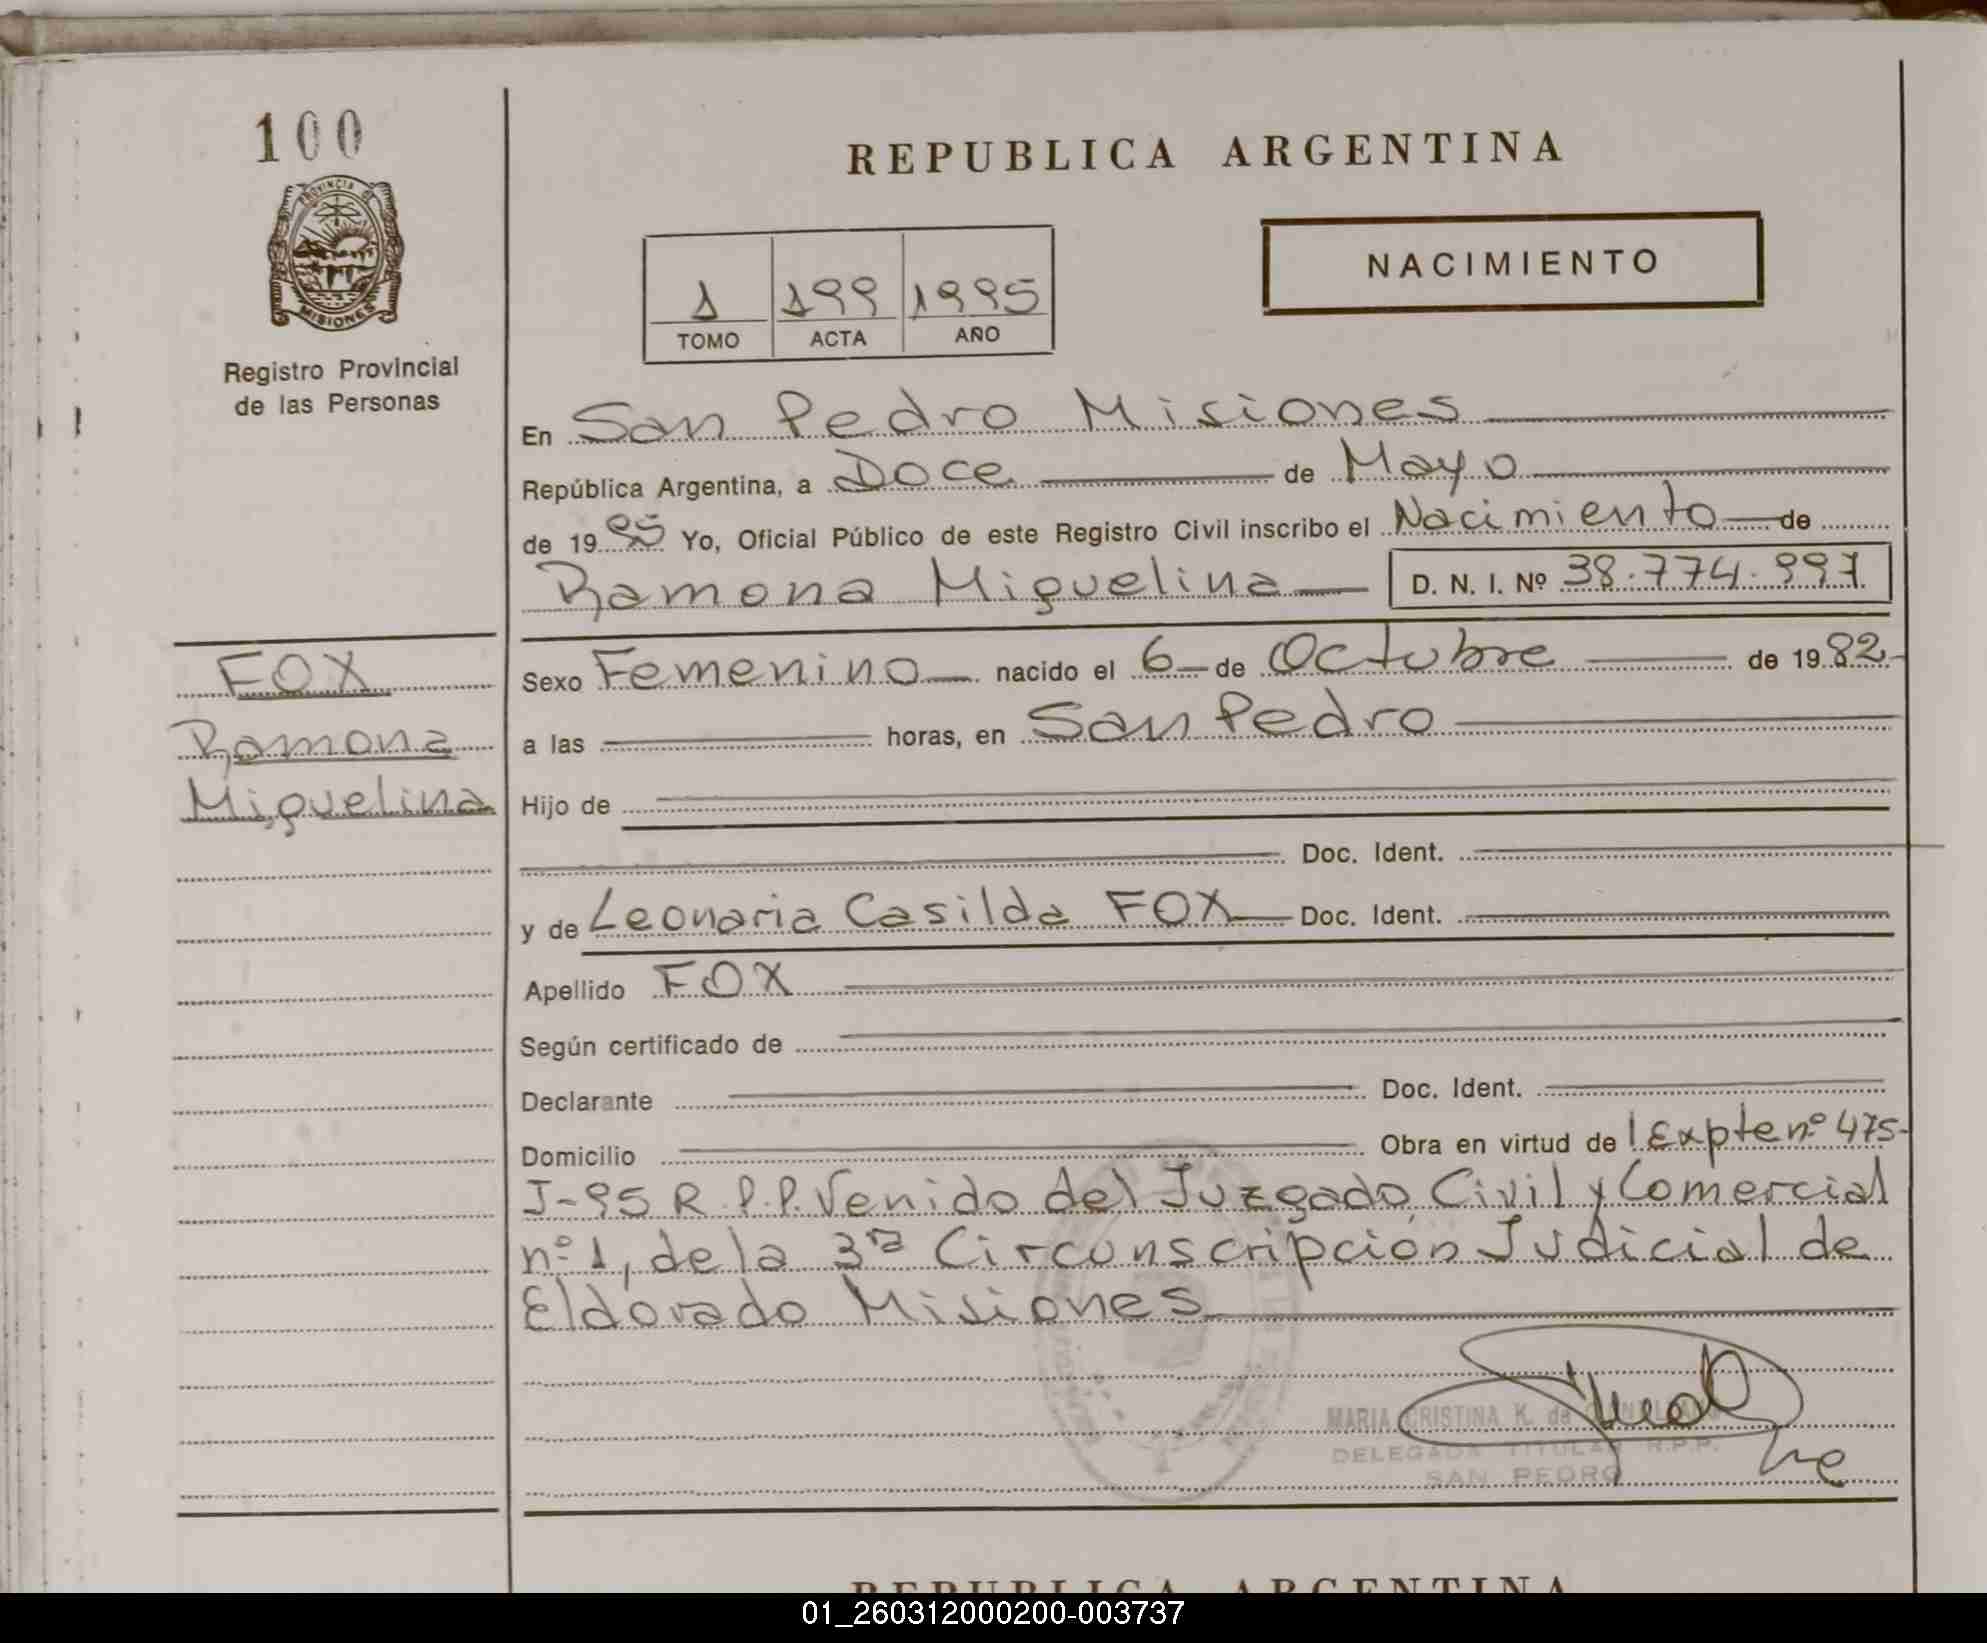 100
PROVINCIA DE
MISIONES
Registro Provincial
de las Personas
REPUBLICA ARGENTINA
NACIMIENTO
1 199 1995
TOMO ACTA AÑO
En San Pedro Misiones
República Argentina, a Doce de Mayo
de 1995 Yo, Oficial Público de este Registro Civil inscribo el Nacimiento de
Ramona Miguelina D. N. I. Nº 38.774.997
FOX
Ramona
Miguelina
Sexo Femenino nacido el 6 de Octubre de 1982
a las horas, en San Pedro
Hijo de
Doc. Ident.
y de Leonaria Casilda FOX Doc. Ident.
Apellido FOX
Según certificado de
Declarante Doc. Ident.
Domicilio Obra en virtud de l Expte nº 475-
J-95 R.P.P. Venido del Juzgado Civil y Comercial
nº 1, de la 3ra Circunscripción Judicial de
Eldorado Misiones
MARIA CRISTINA K. de
DELEGADA TITULAR R.P.P.
SAN PEDRO
REPUBLICA ARGENTINA
01_260312000200-003737